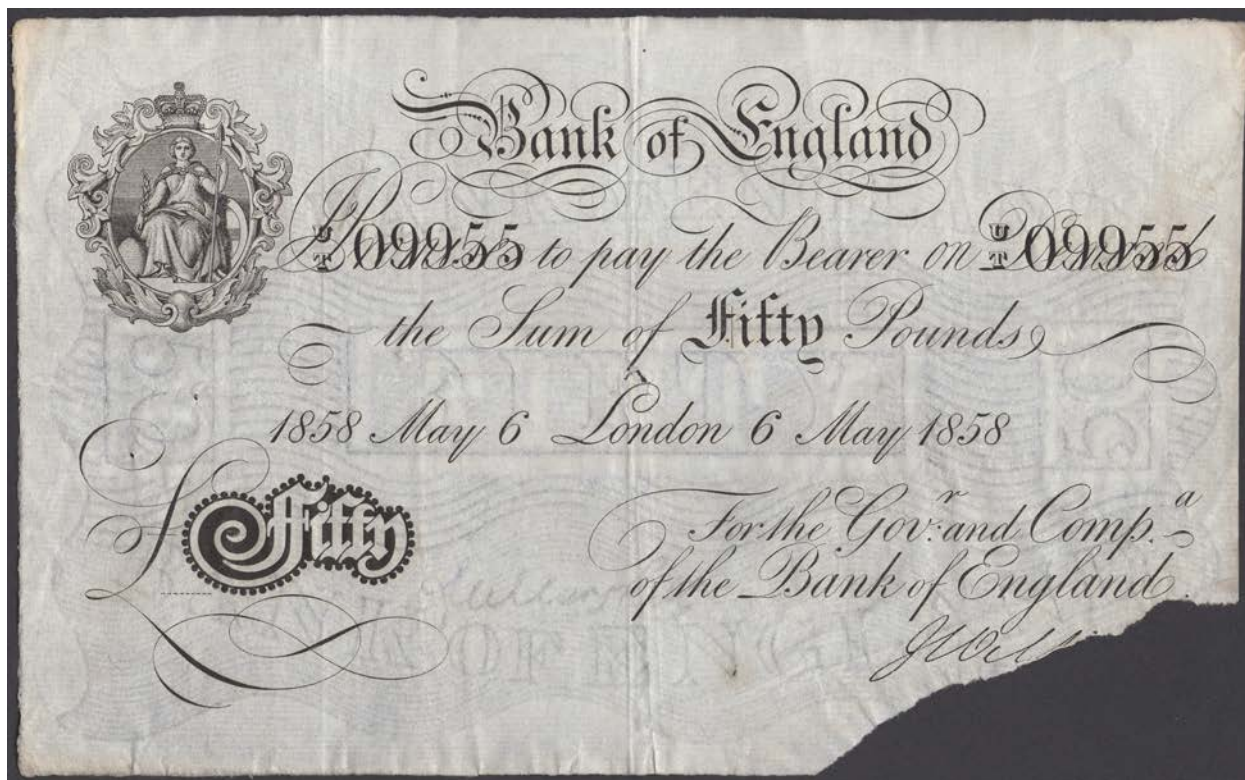 Bank of England
U/T 09955 to pay the Bearer on U/T 09955
the Sum of Fifty Pounds
1858 May 6 London 6 May 1858
£ Fifty
For the Gov.r and Comp.a
of the Bank of England.